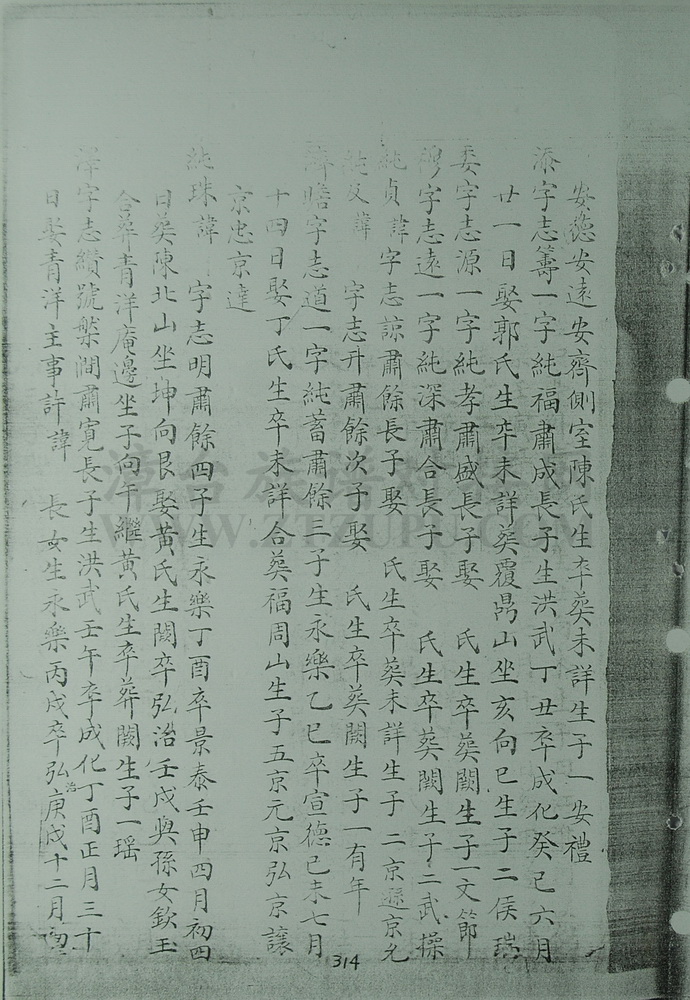 安德安遠安齊側室陳氏生卒葬未詳生子一安禮
添字志籌一字純福肅成長子生洪武丁丑卒成化癸巳六月
廿一日娶郭氏生卒未詳葬覆鼎山坐亥向巳生子二侯瑞
委字志源一字純孝肅盛長子娶 氏生卒葬闕生子一文節
字志遠一字純深肅合長子娶 氏生卒葬闕生子二武操
純貞諱字志諒肅餘長子娶 氏生卒葬未詳生子二京遜京允
純友諱 字志升肅餘次子娶 氏生卒葬闕生子一有年
諱瞻字志道一字純蓄肅餘三子生永樂乙巳卒宣德己未七月
十四日娶丁氏生卒未詳合葬福周山生子五京元京弘京讓
京忠京達
純珠諱 字志明肅餘四子生永樂丁酉卒景泰壬申四月初四
日葬陳北山坐坤向艮娶黃氏生闕卒弘治壬戌與孫女欽玉
合葬青洋庵邊坐子向午繼黃氏生卒葬闕生子一瑶
澤字志纘號槃澗肅寬長子生洪武壬午卒成化丁酉正月三十
日娶青洋主事許諱 長女生永樂丙戌卒弘治庚戌十二月初
314
漳台族譜
WWW.ZTZUPU.COM